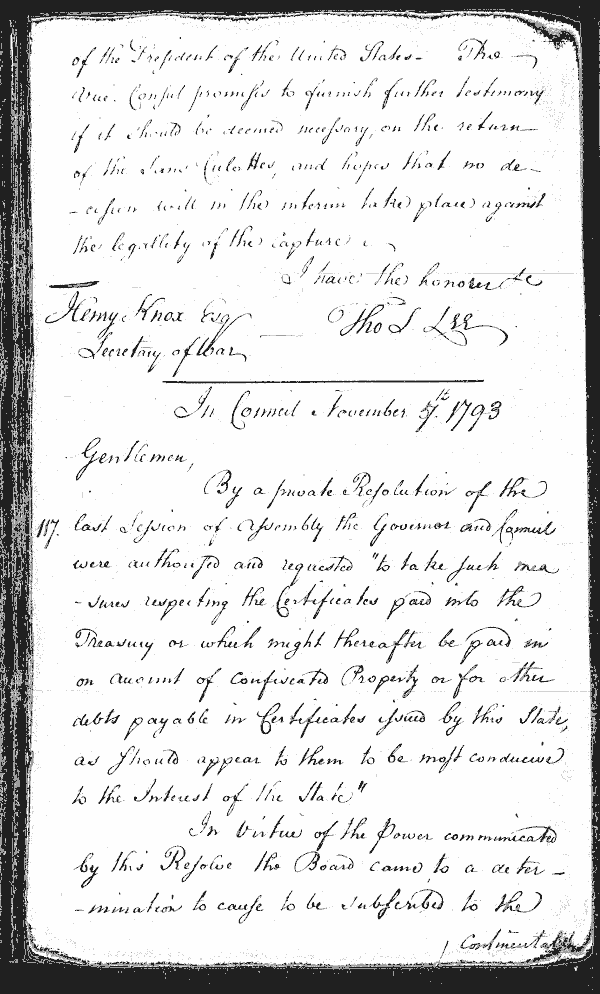 of the President of the United States - The
Vice Consul promises to furnish further testimony
if it should be deemed necessary, on the return
of the Sans Culottes, and hopes that no de-
-cision will in the interim take place against
the legallity of the capture
I have the honorer &c
Henry Knox Esq
Thos S Lee
Secretary of War
In Council November 5th 1793
Gentlemen,
By a private Resolution of the
117. last Session of Assembly the Governor and Council
were authorised and requested "to take such mea
-sures respecting the Certificates paid into the
Treasury or which might thereafter be paid in
on account of confiscated Property or for other
debts payable in Certificates issued by this State,
as should appear to them to be most conducive
to the Interest of the State"
In Virtue of the Power communicated
by this Resolve the Board came to a deter-
-mination to cause to be subscribed to the
Continental